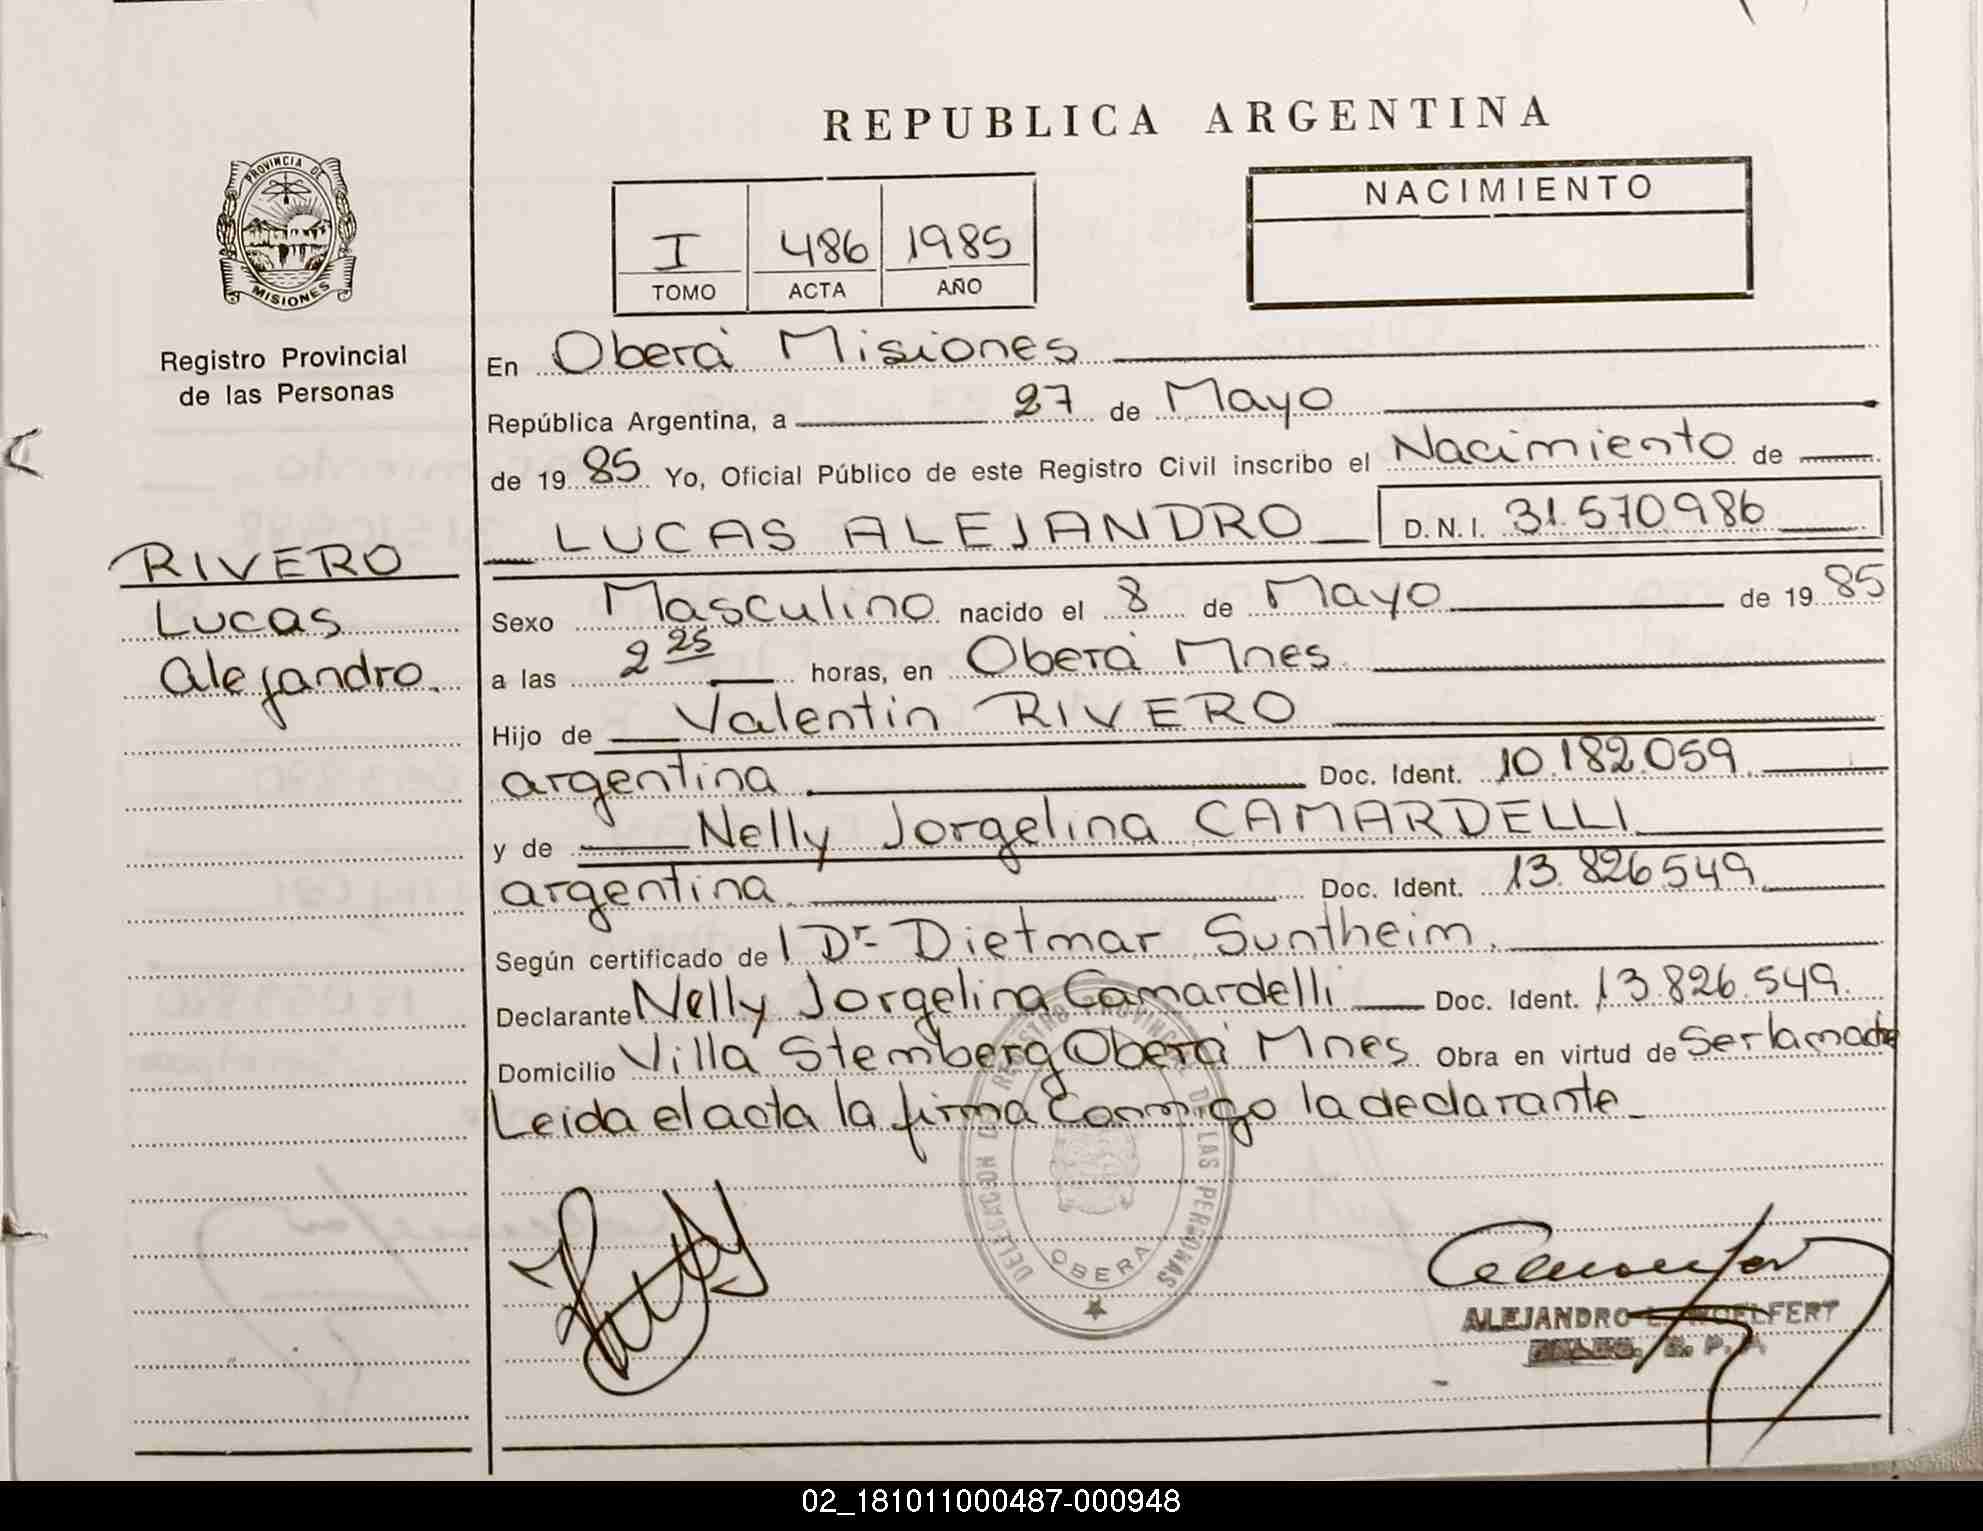 REPUBLICA ARGENTINA
PROVINCIA DE
MISIONES
Registro Provincial
de las Personas
NACIMIENTO
I 486 1985
TOMO ACTA AÑO
En Oberá Misiones
República Argentina, a 27 de Mayo
de 19 85 Yo, Oficial Público de este Registro Civil inscribo el Nacimiento de
LUCAS ALEJANDRO D.N.I. 31.570.986
RIVERO
Lucas
Alejandro.
Sexo Masculino nacido el 8 de Mayo de 19 85
a las 2 25 horas, en Oberá Mnes.
Hijo de Valentin RIVERO
argentina Doc. Ident. 10.182.059
y de Nelly Jorgelina CAMARDELLI
argentina Doc. Ident. 13.826.549
Según certificado de l Dr. Dietmar Suntheim.
Declarante Nelly Jorgelina Camardelli Doc. Ident. 13.826.549.
Domicilio Villa Stemberg Oberá Mnes. Obra en virtud de Ser la madre
Leida el acta la firma Conmigo la declarante
DELEGACION DE REGISTRO PROVINCIAL DE LAS PERSONAS
OBERA
ALEJANDRO L. WOELFERT
R. P.
02_181011000487-000948